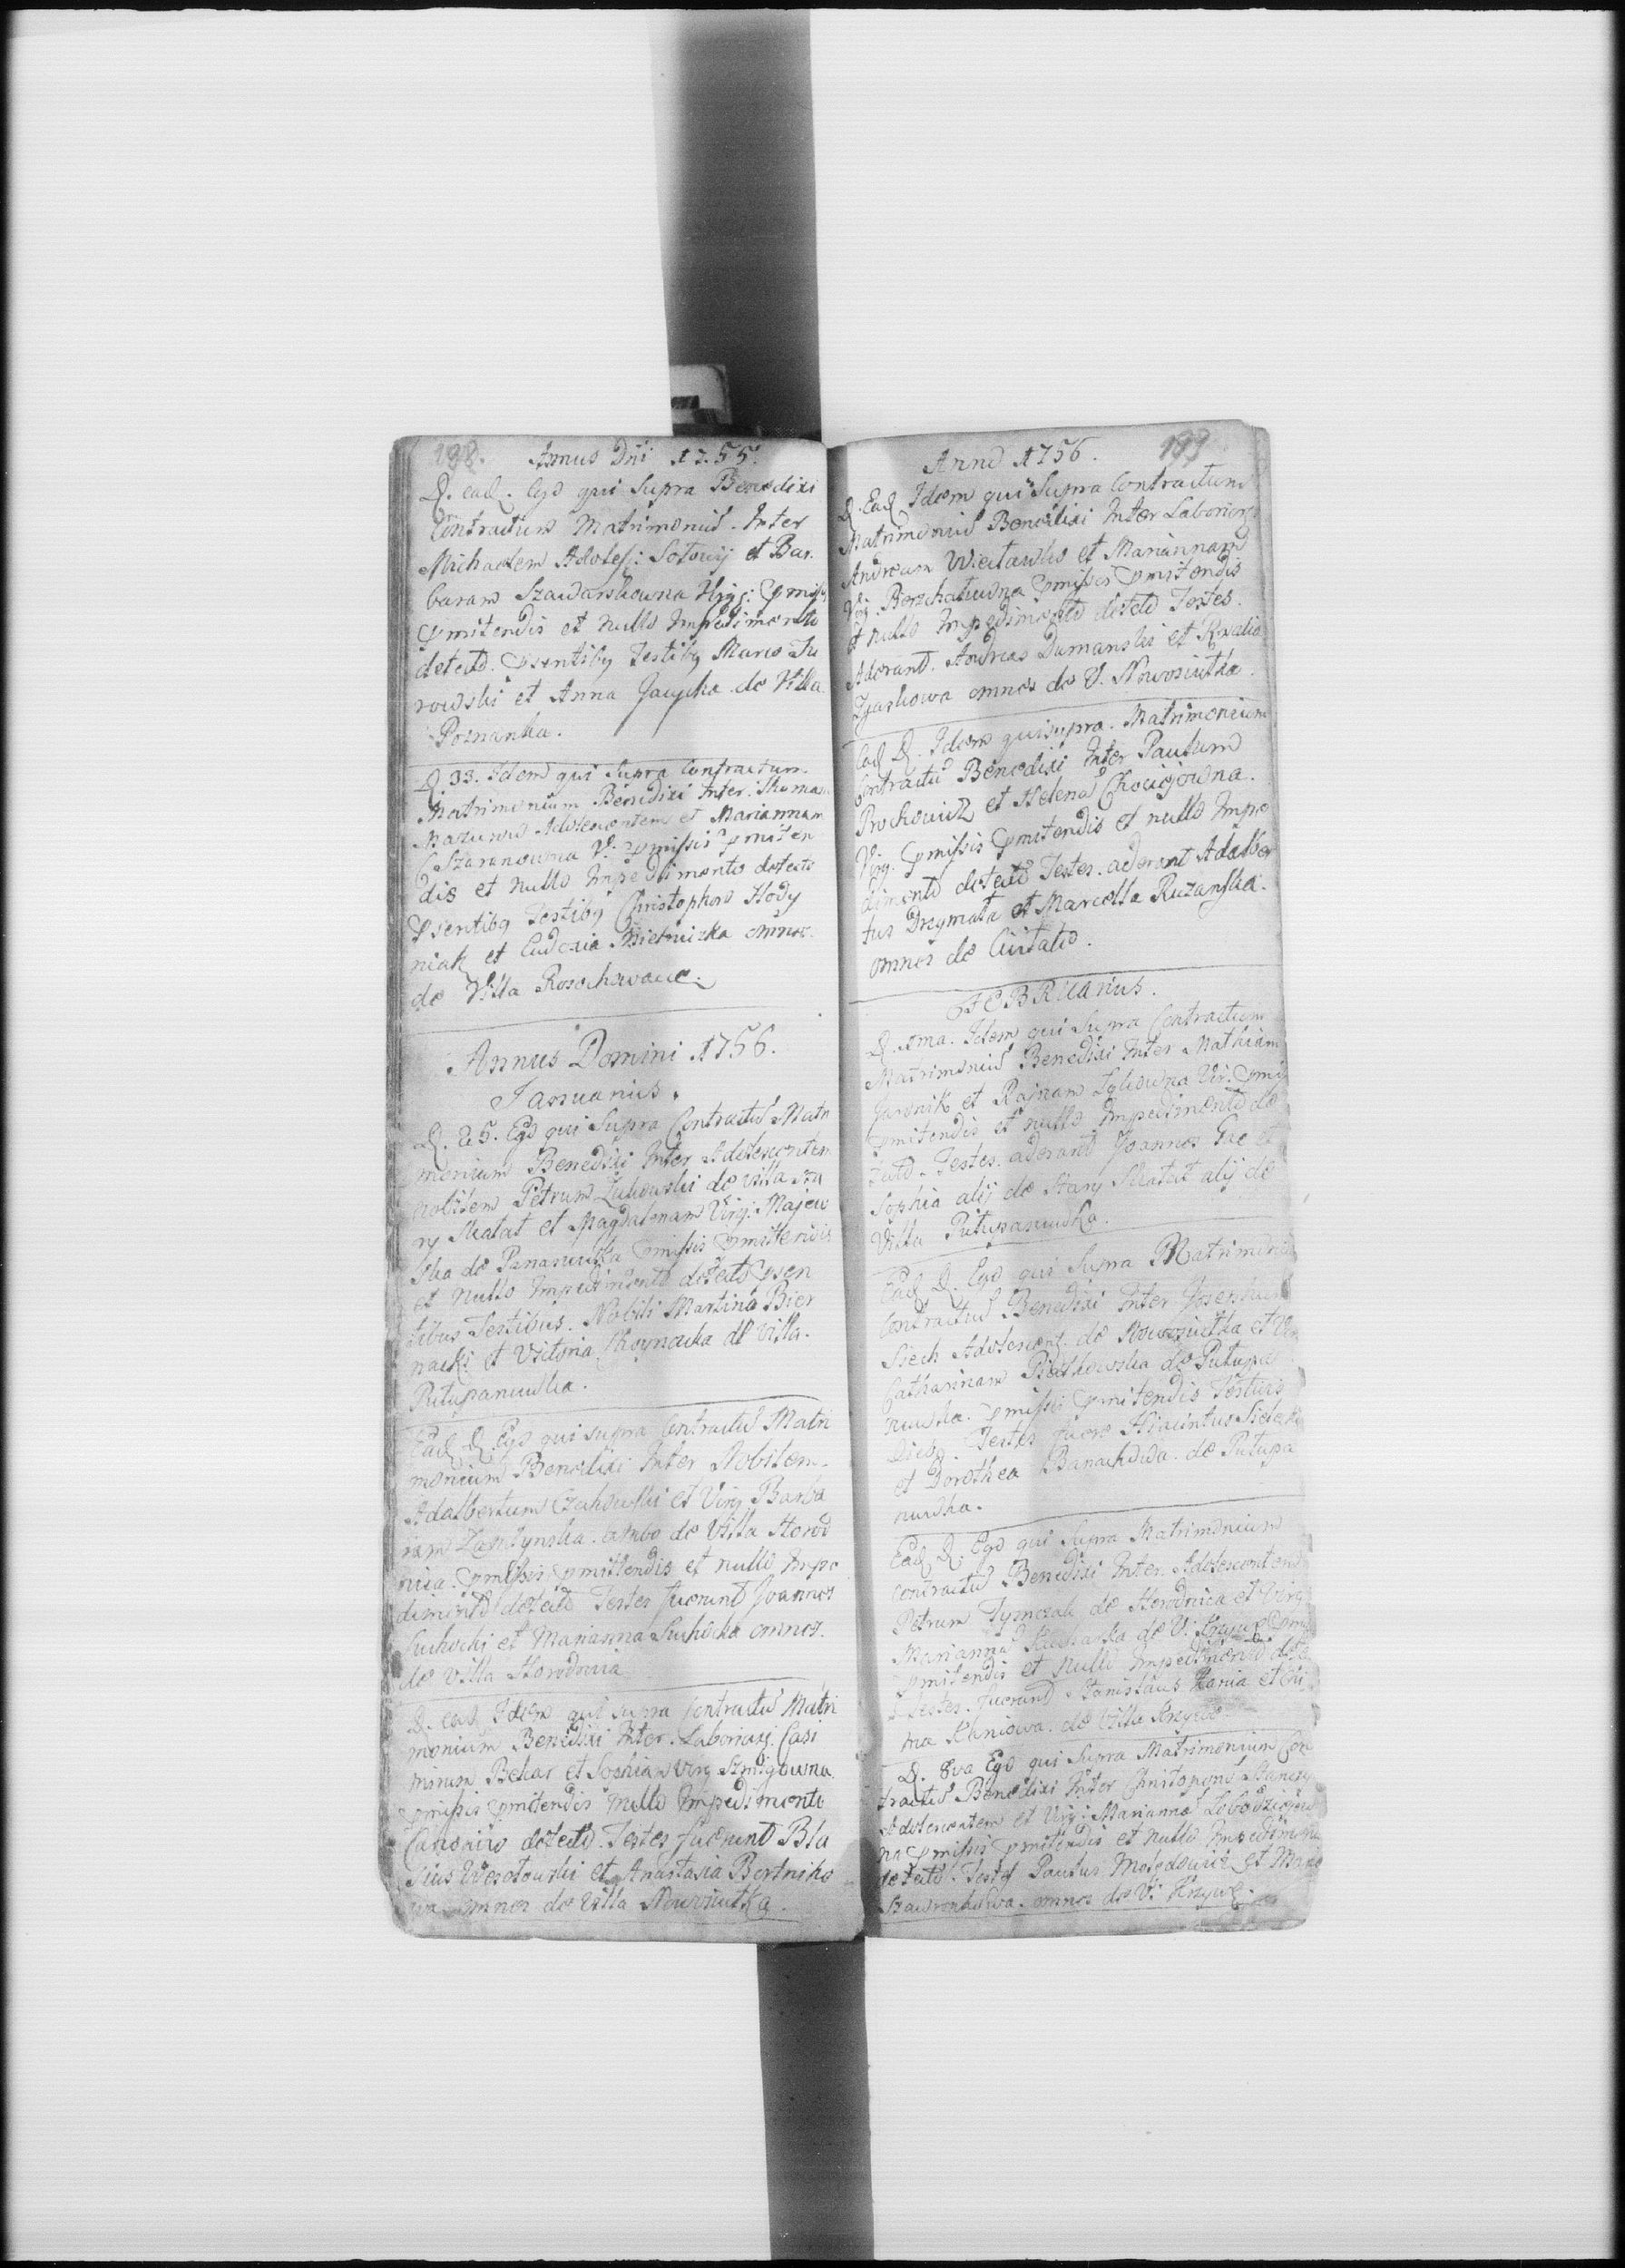 198. Annus Dni 1755.
D. ead. Ego qui Supra Benedixi
Contractum Matrimoniū. Inter
Michaelem Adolesc: Sotowij et Bar
baram Szawarskowna Virg: pmissis
pmitendis et nullo Impedimento
detecto. psentibq Testibq Marco Tu
rowski et Anna Jaycka de Villa
Poznanka.
D. 33. Idem qui Supra Contractum
Matrimonium Benedixi Inter. Thomam
Mazurow Adolescentem et Mariannam
Sztaranowna V: pmissis pmiten
dis et nullo Impedimento detecto
psentibq Testibq Christophoro Hody
niak et Eudoxia Mielnicka omnes
de Villa Rosochowaciec.
Annus Domini 1756.
Januarius.
D. 25. Ego qui Supra Contractū Matri
monium Benedixi Inter Adolescentem
nobilem Petrum Zukowski de villa Sta
ry Skalat et Magdalenam Virg: Majew
ska de Panasuwka pmissis pmittendis
et nullo Impedimento detecto psen
tibus Testibus. Nobili Martino Bier
nacki et Victoria Choynacka de villa
Putupanuwka.
Ead D. Ego qui supra Contractū Matri
monium Benedixi Inter Nobilem
Adalbertum Czukowski et Virg Barba
ram Zamtynska. ambo de Villa Horod
nica. pmissis pmittendis et nullo Impe
dimento detecto Testes fuerunt Joannes
Suchocki et Marianna Suchocka omnes
de villa Horodnica
D. ead Idem qui supra Contractū Matri
monium Benedixi Inter. Laborios. Casi
mirum Bekar et Sophiam Virg Szmigowna
pmissis pmitendis nullo Impedimento
Canonico detecto. Testes fuerunt Bla
sius Wesotowski et Anastasia Bortniko
wa omnes de Villa Nowosiutka.
Anno 1756. 199
D. Ead Idem qui Supra Contractum
Matrimoniū Benedixi Inter Laborios
Andream Wietawko et Mariannam
Vig. Borzchatuwna pmissis pmitendis
et nullo Impedimento detecto Testes.
Aderant. Andreas Damanski et Rozalia
Zyaskowa omnes de V. Nowosiutka.
Ead D. Idem qui supra. Matrimonium
Contractū Benedixi Inter Paulum
Prochowicz et Helenā Chociejowna.
Virg. pmissis pmitendis et nullo Impe
dimento detecto Testes. aderant Adalber
tus Drzymata et Marcella Ruzanska.
omnes de Civitate.
FEBRUarius.
D. 1ma. Idem qui Supra Contractum
Matrimoniū Benedixi Inter Mathiam
Jawnik et Rajnam Lykowna Vir. pmis
pmitendis et nullo Impedimento de
tecto. Testes. aderant Joannes Gac et
Sophia alij de Stary Skatat alij de
Villa Putupanuwka.
Ead D. Ego qui Supra Matrimoniū
Contractū Benedixi Inter Josephum
Siech Adolescent. de Nowosiutka et Virg
Catharinam Piatkowska de Putupa
nuwka. pmissis pmitendis Testuis
Testes fuere Hiacintus Sielecki
et Dorothea Banachowa. de Putupa
nuwka.
Ead D. Ego qui Supra Matrimonium
contractū Benedixi Inter. Adolescentem
Petrum Tymczak de Horodnica et Virg
Mariannā Kucharska de V. Krzywe pmis
pmitendis et nullo Impedimento dete
Testes. fuerunt Stanislaus Kania et Chi
ma Khniowa. de Villa Krzywe
D. 8va Ego qui Supra Matrimonium Con
tractū Benedixi Inter Christoporū Stanczy
Adolescentem et Virg: Mariannā Lobodziejow
na pmissis pmittendis et nullo Impedimento
detecto. Testes Paulus Metodowicz et Maria
Szawronkowa. omnes de V: Krzywe.